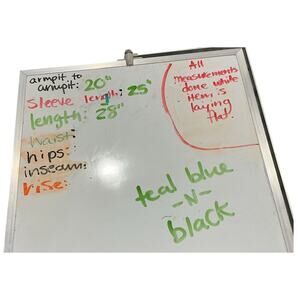 armpit to
armpit: 20"
Sleeve length: 25"
length: 28"
Waist:
hips:
inseam:
rise:
All
measurements
done while
item is
laying
flat.
teal blue
-N-
black